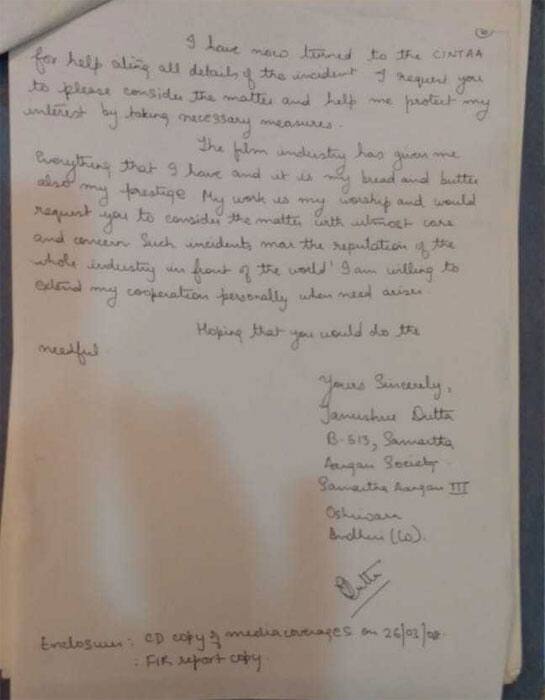 I have now turned to the CINTAA
for help along all details of the incident I request you
to please consider the matter and help me protect my
interest by taking necessary measures.
The film industry has given me
Everything that I have and it is my bread and butter
also my prestige My work is my worship and would
request you to consider the matter with utmost care
and concern Such incidents mar the reputation of the
whole industry in front of the world' I am willing to
extend my cooperation personally when need arises.
Hoping that you would do the
needful
Yours Sincerely,
Tanushree Dutta
B-513, Samartha
Aangan Society.
Samartha Aangan III
Oshiwara
Andheri (W).
Dutta
Enclosure: CD copy of media coverages on 26/03/08.
: FIR report copy.